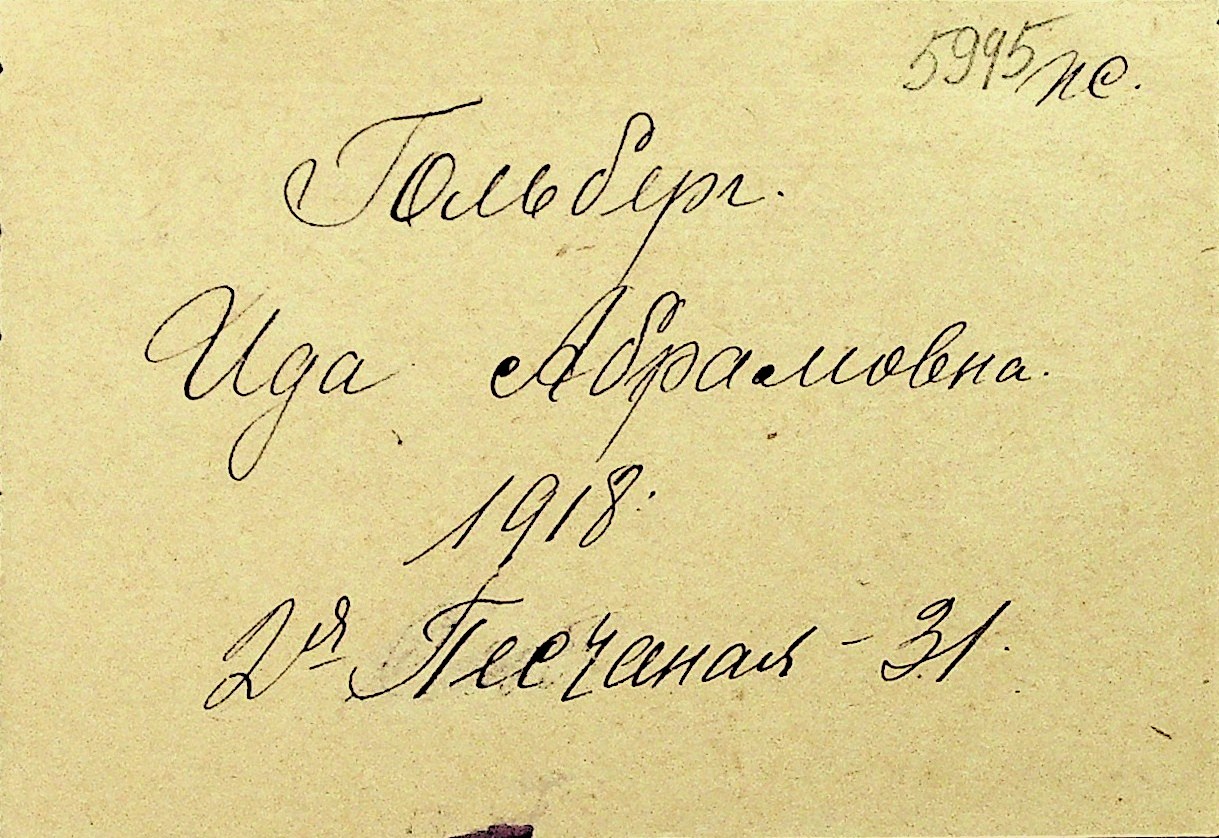 5995 пс.
Гольберг.
Ида Абрамовна.
1918.
2я Песчаная - 31.